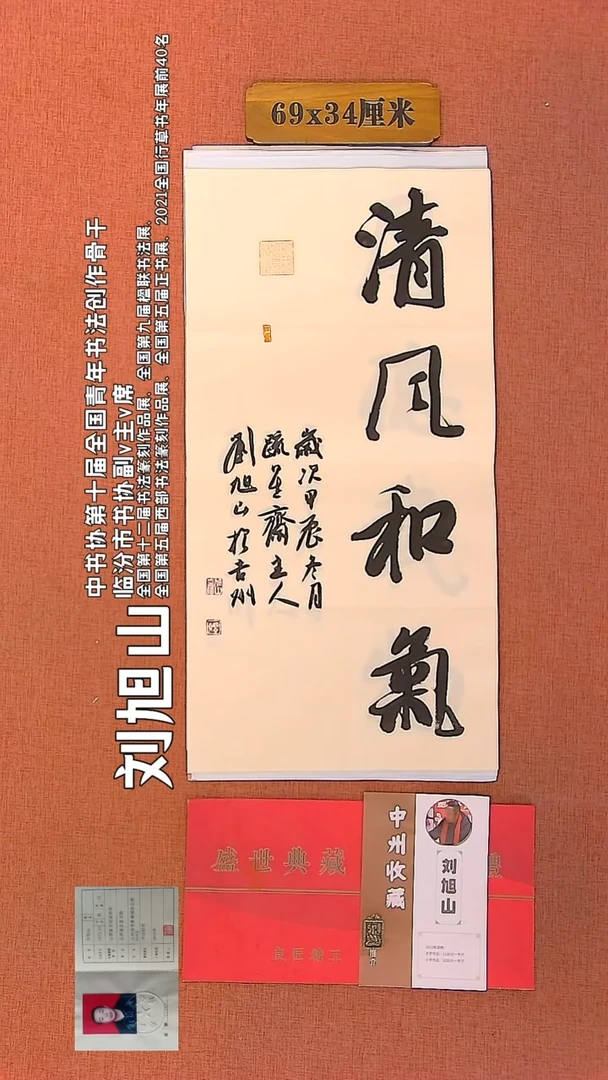 69x34厘米
清风和氣
歲次甲辰冬月
疏星齋主人
刘旭山於古州
刘旭山
中书协第十届全国青年书法创作骨干
临汾市书协副v主v席
全国第十二届书法篆刻作品展、全国第九届楹联书法展、
全国第五届西部书法篆刻作品展、全国第五届正书展、2021全国行草书年展前40名
盛世典藏
中州收藏
刘旭山